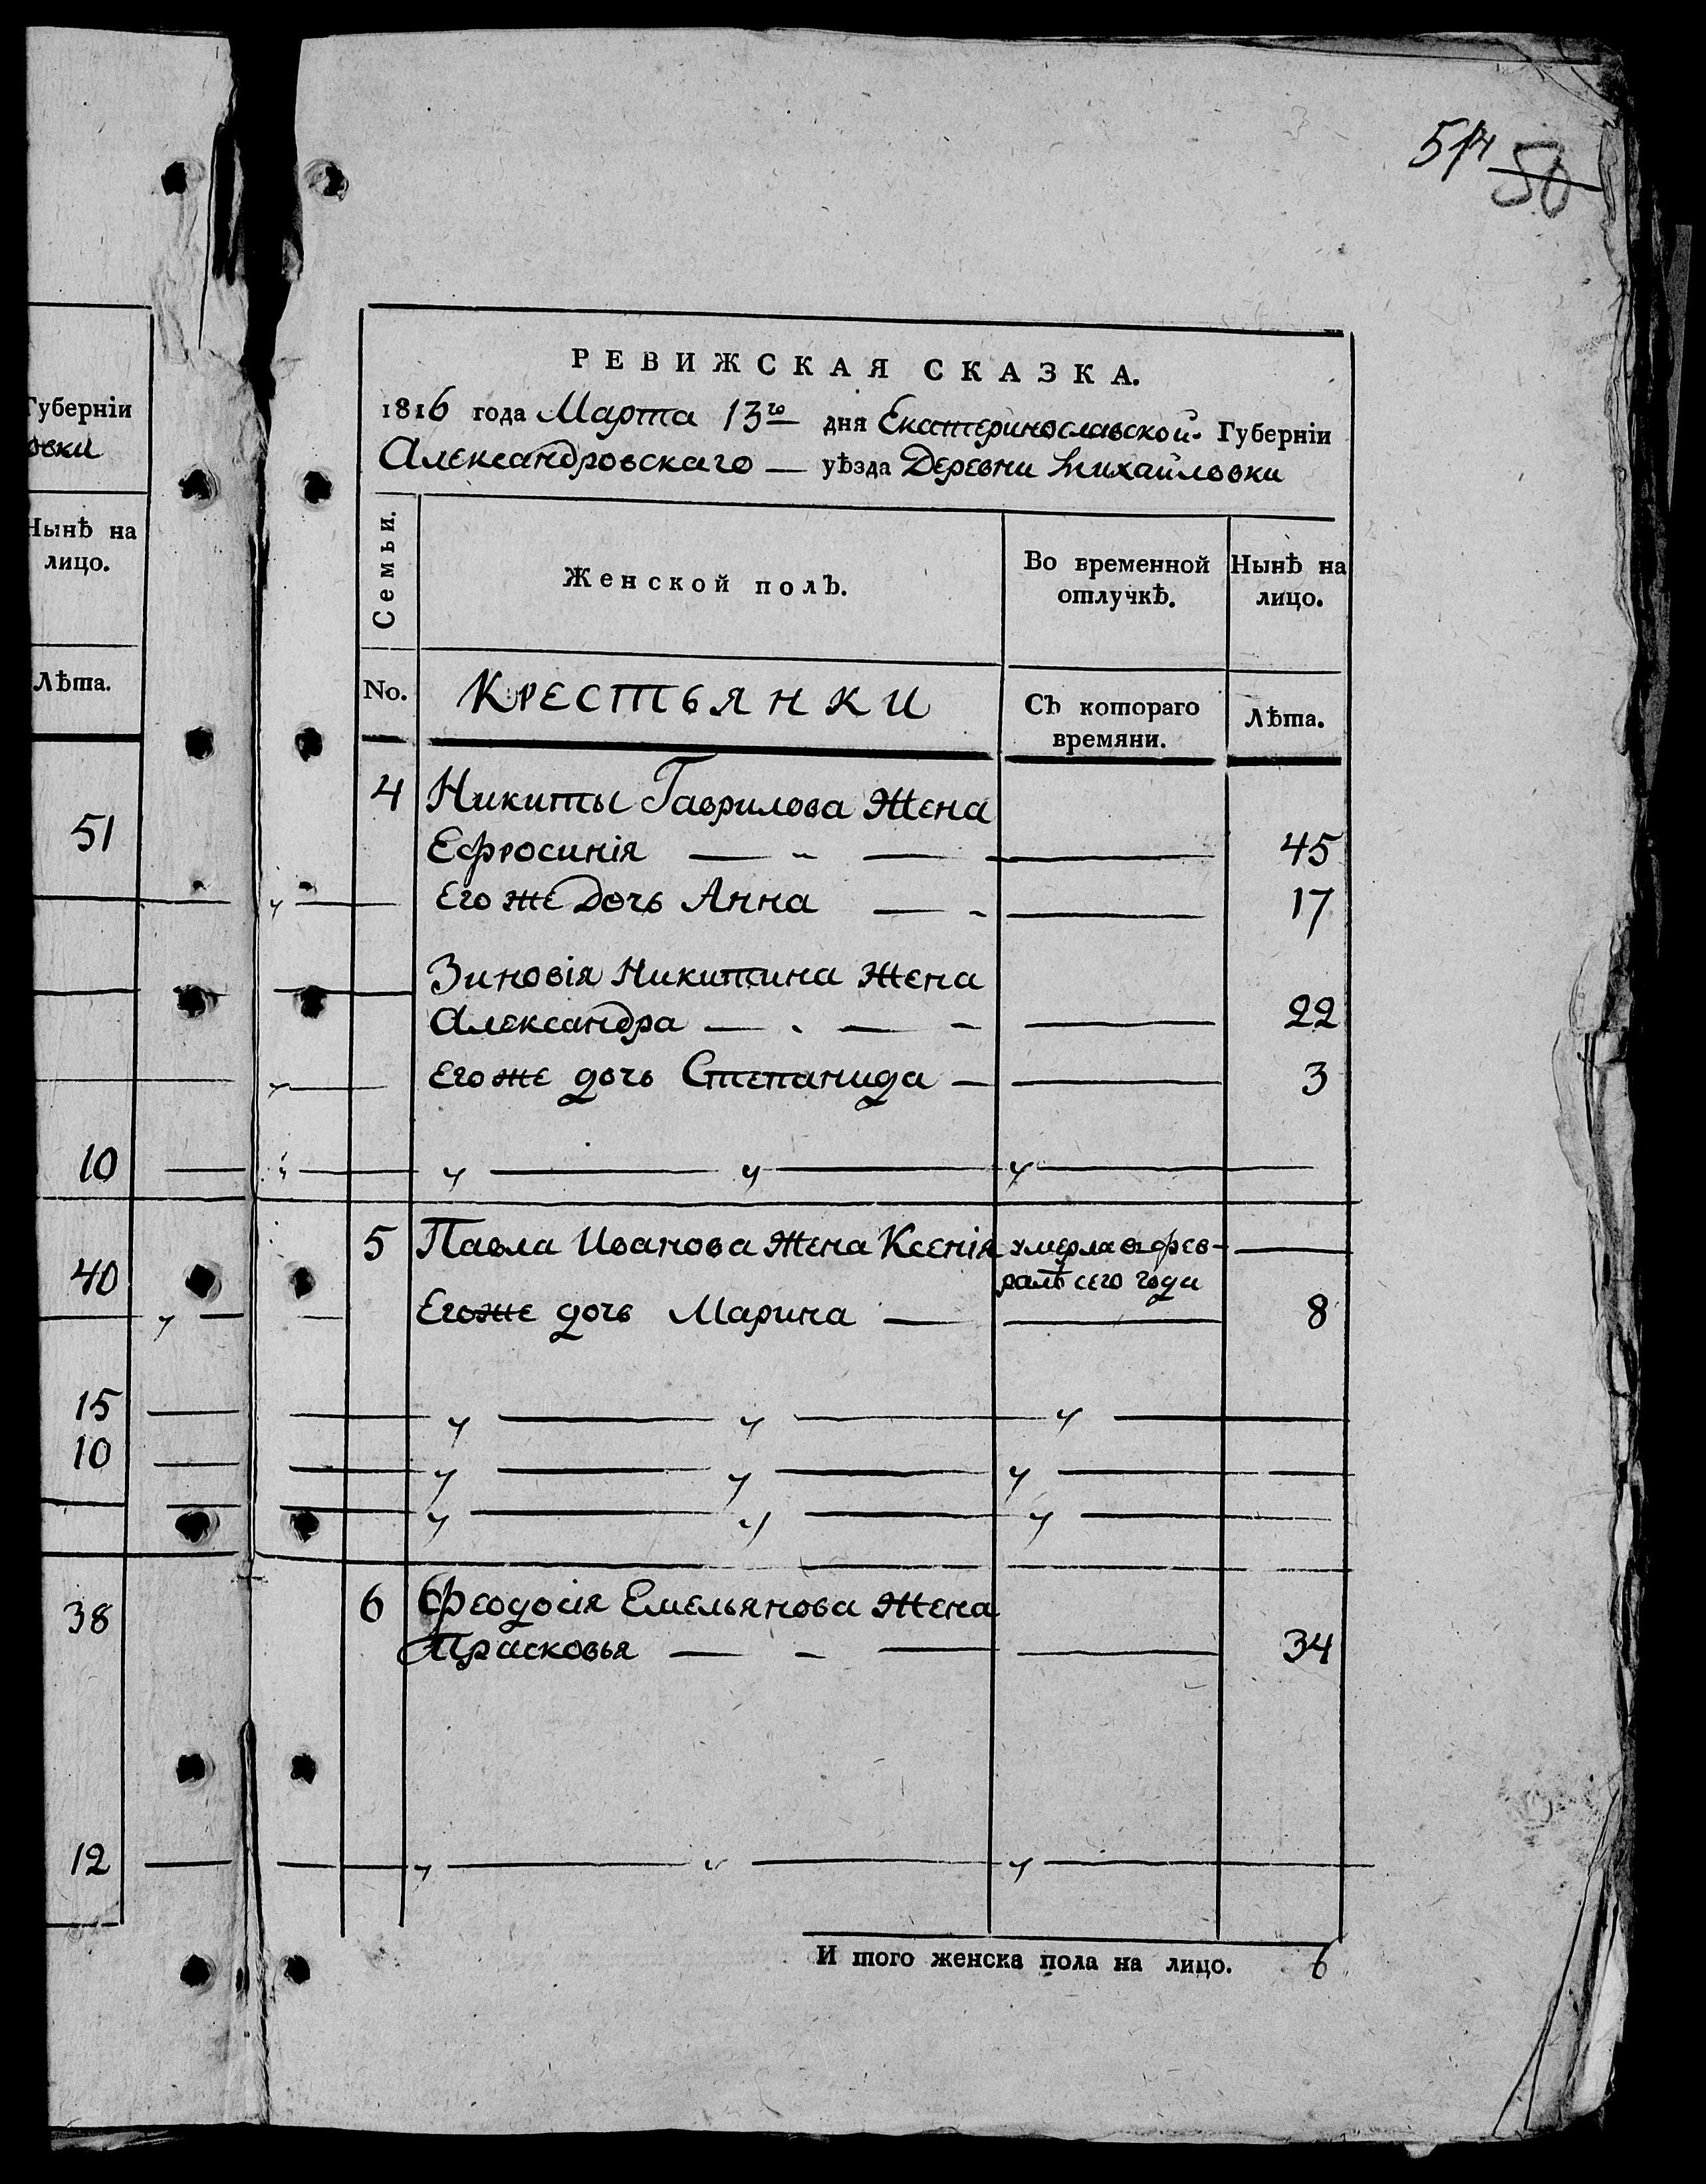 50
Губерніи
овки
Нынѣ на
лицо.
Лѣта.
51
10
40
15
10
38
12
РЕВИЖСКАЯ СКАЗКА.
1816 года Марта 13го дня Екатеринославской Губерніи
Александровскаго — уѣзда Деревни Михайловки
Семьи.
Женской полъ.
Во временной
отлучкѣ.
Нынѣ на
лицо.
No.
Крестьянки
Съ котораго
времяни.
Лѣта.
4 Никиты Гаврилова Жена
Ефросинія — — — 45
Его же Дочь Анна — — 17
Зиновія Никитина Жена
Александра — — — 22
Егоже дочь Степанида — — 3
5 Павла Иванова Жена Ксенія умерла въ фев- —
ралѣ сего года
Егоже дочь Марина — — 8
6 Феодосія Емельянова Жена
Прасковья — — — 34
И того женска пола на лицо. 6